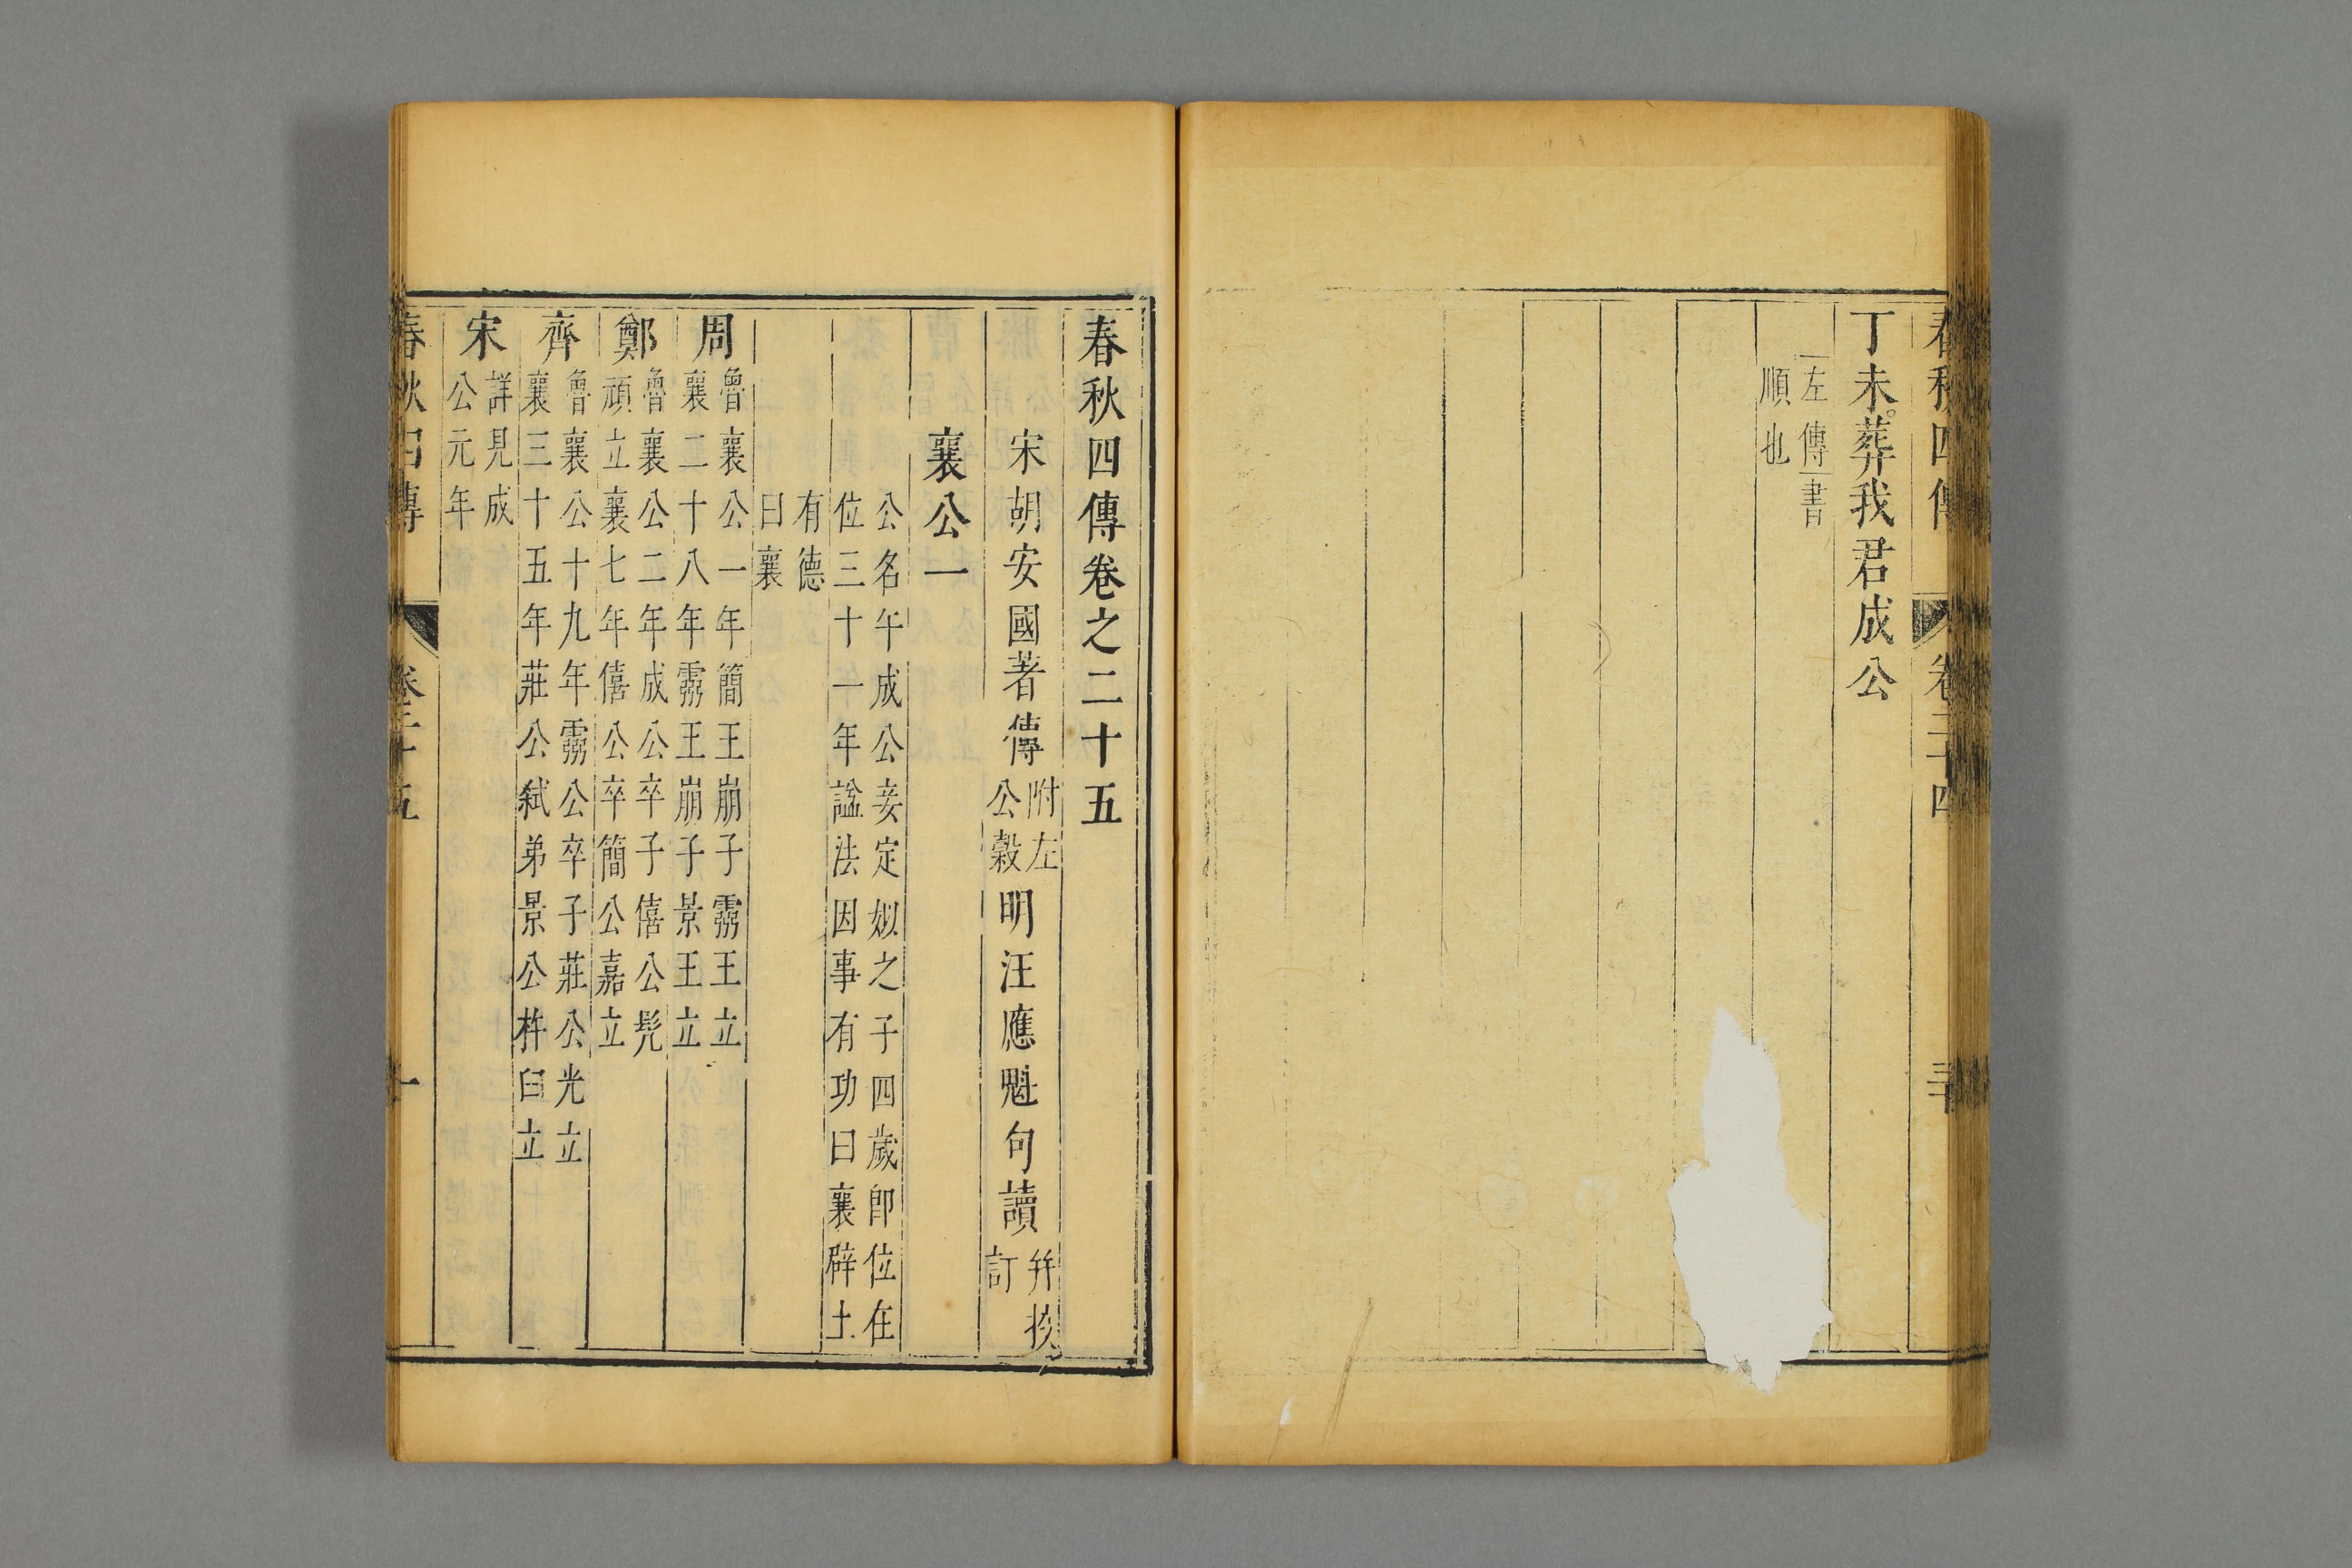 春秋四傳
卷二十四
丁未葬我君成公
左傳書
順也
春秋四傳卷之二十五
宋胡安國著傳 附左 公穀 明汪應魁句讀 并按 訂
襄公一
公名午成公妾定姒之子四歲卽位在
位三十一年諡法因事有功曰襄辟土
有德
曰襄
周 魯襄公一年簡王崩子靈王立
襄二十八年靈王崩子景王立
鄭 魯襄公二年成公卒子僖公髡
頑立襄七年僖公卒簡公嘉立
齊 魯襄公十九年靈公卒子莊公光立
襄三十五年莊公弒弟景公杵臼立
宋 詳見成
公元年
春秋四傳
卷二十五
一